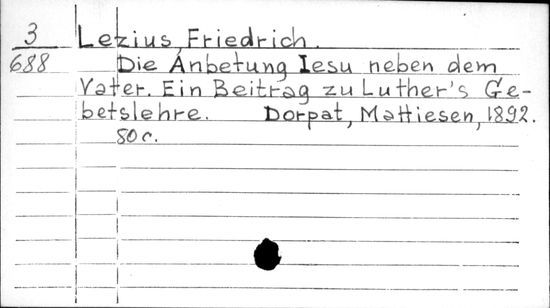 3 Lezius, Friedrich.
688 Die Anbetung Iesu neben dem
Vater. Ein Beitrag zu Luther's Ge-
betslehre. Dorpat, Mattiesen, 1892.
80 c.